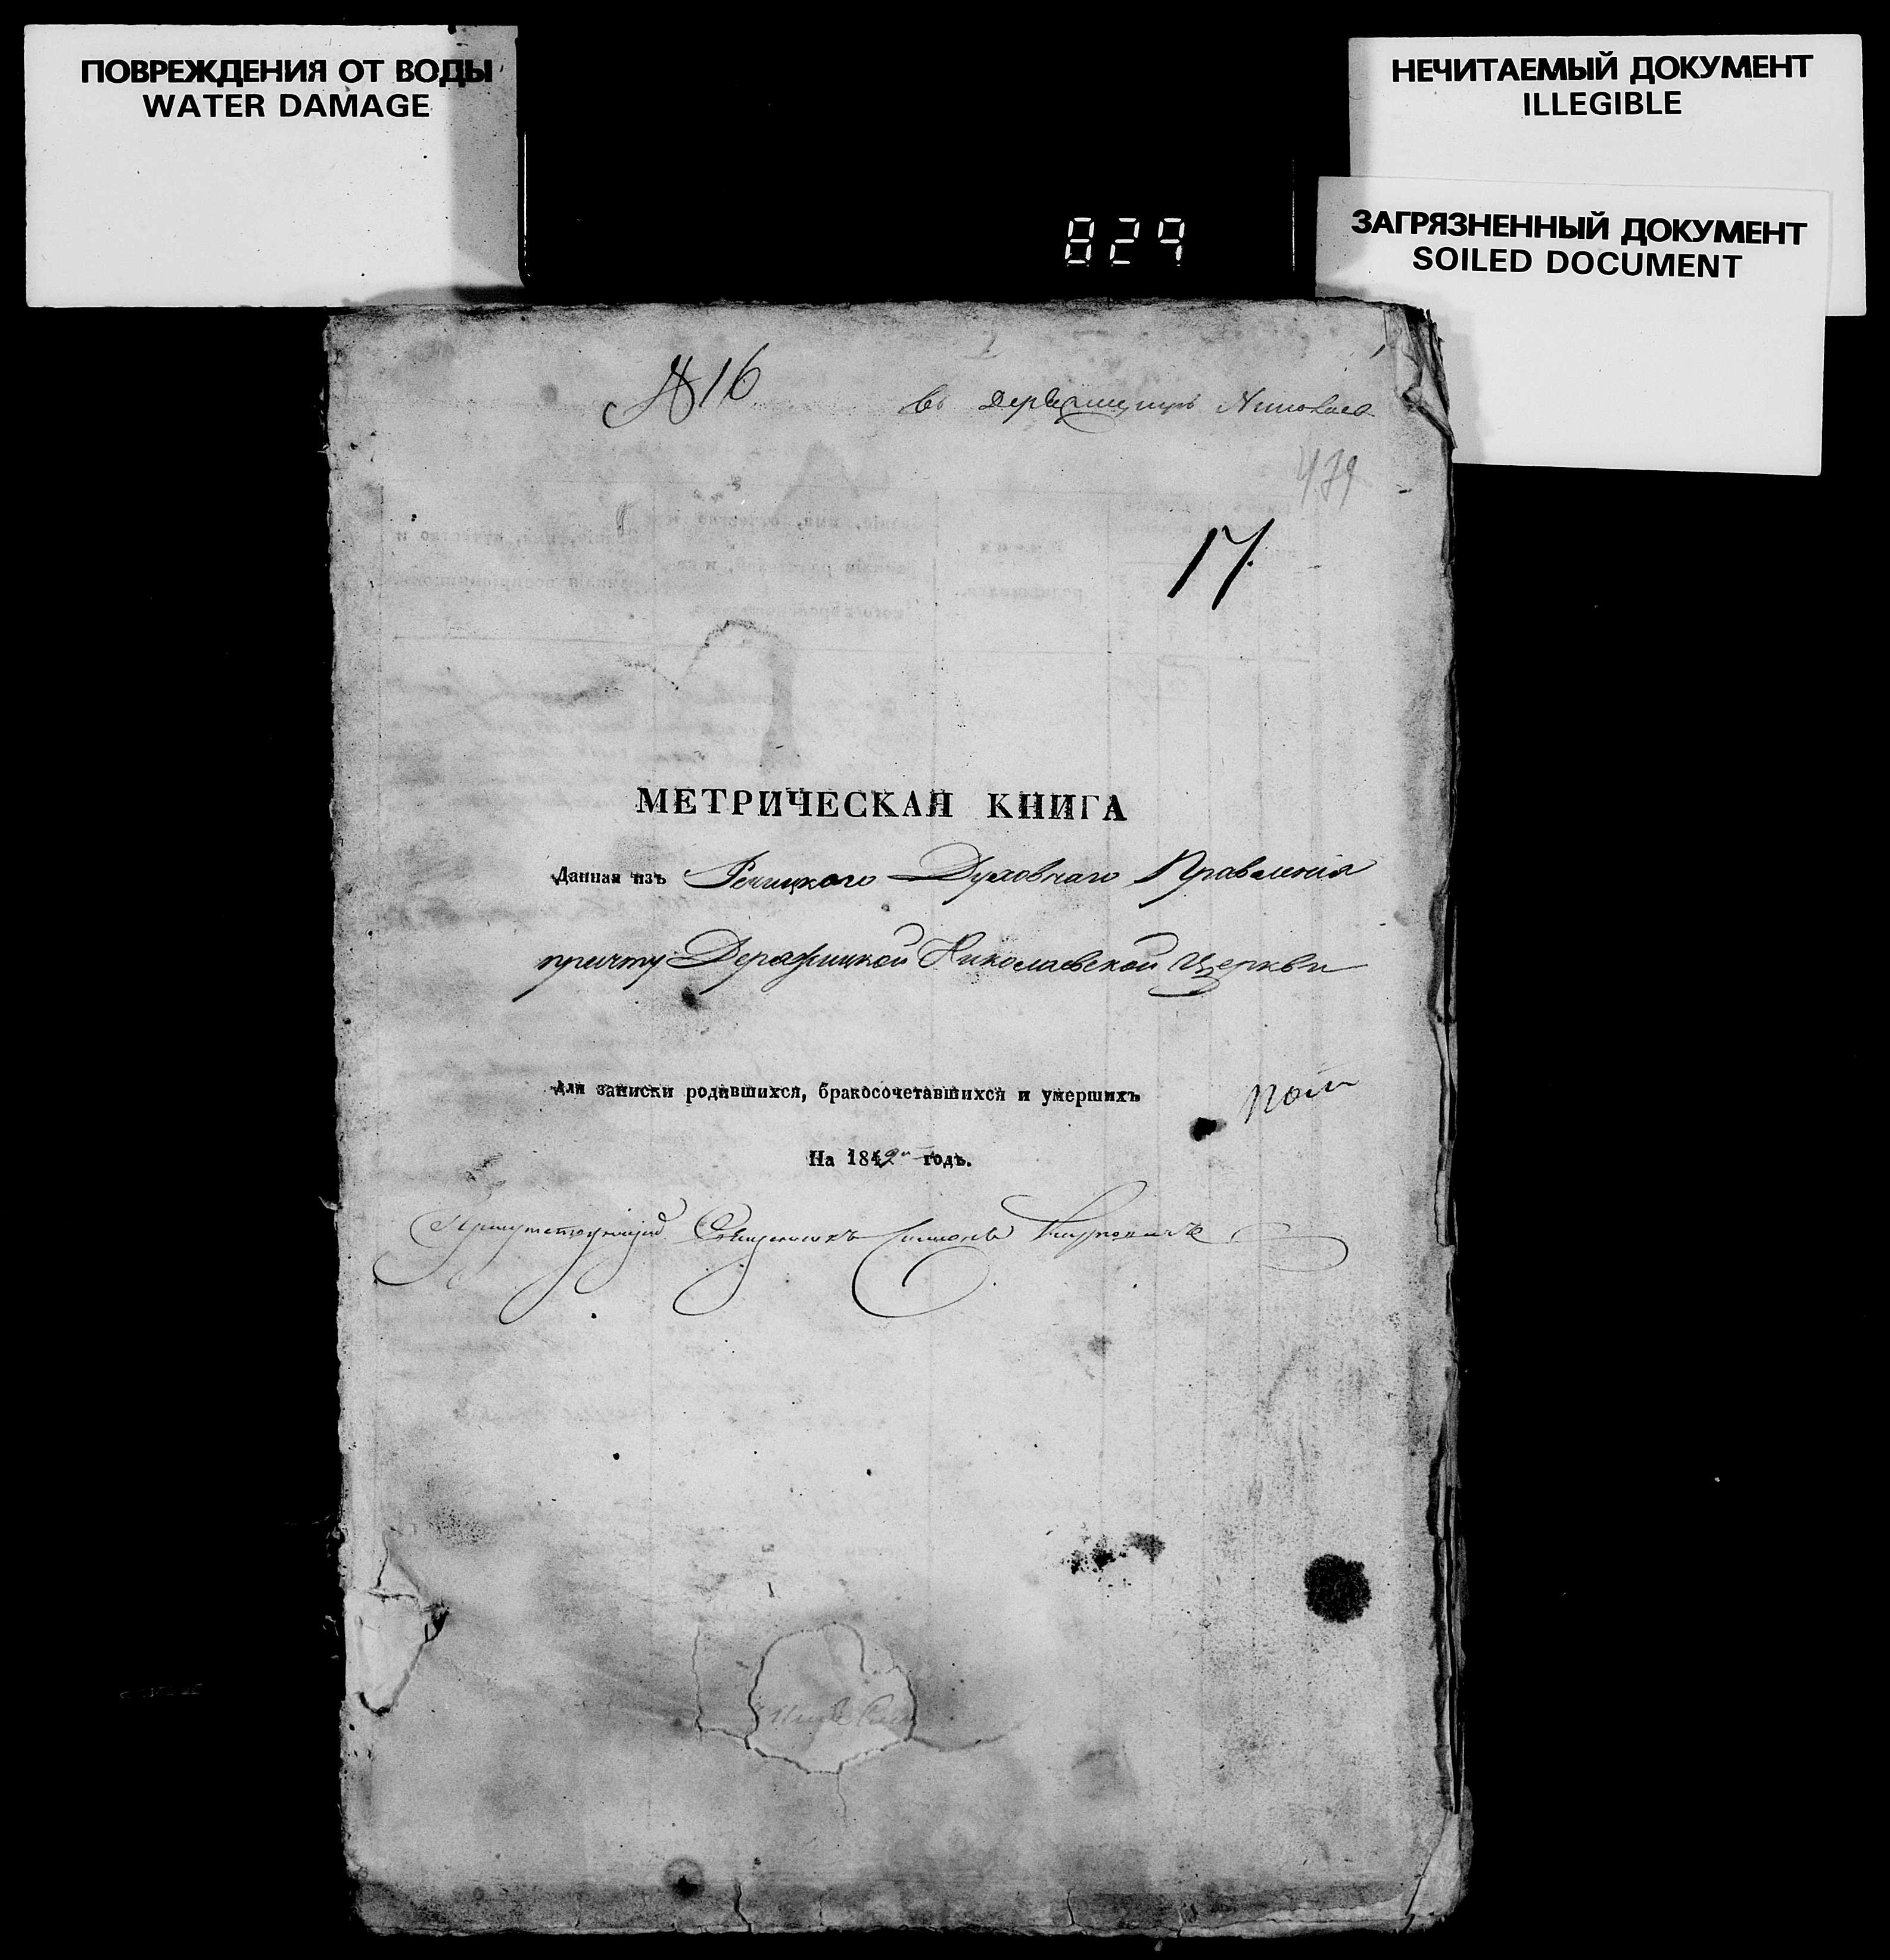 ПОВРЕЖДЕНИЯ ОТ ВОДЫ
WATER DAMAGE
НЕЧИТАЕМЫЙ ДОКУМЕНТ
ILLEGIBLE
ЗАГРЯЗНЕННЫЙ ДОКУМЕНТ
SOILED DOCUMENT
829
№ 16
въ
479
17.
МЕТРИЧЕСКАЯ КНИГА
Данная изъ Речицкого Духовнаго Правленія
причту Деражицкой Николаевской Церкви
для записки родившихся, бракосочетавшихся и умершихъ
На 1842й годъ.
Присутствующій Священникъ Симонъ